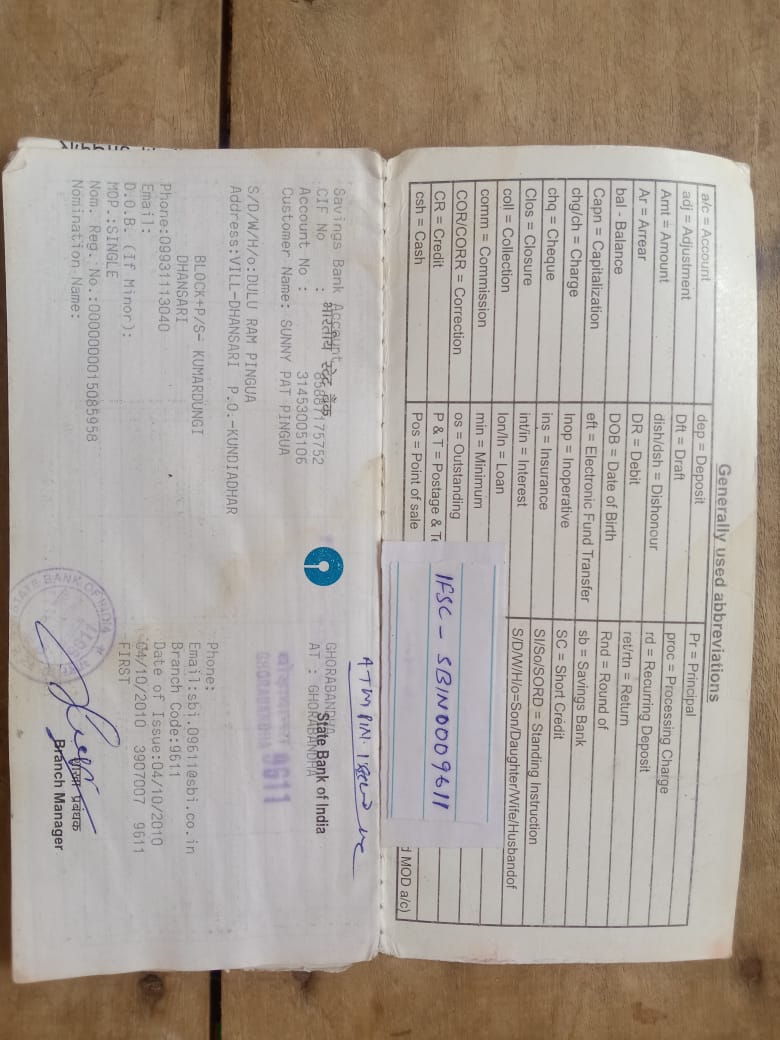 Generally used abbreviations
a/c = Account
adj = Adjustment
Amt = Amount
Ar = Arrear
bal - Balance
Capn = Capitalization
chg/ch = Charge
chq = Cheque
Clos = Closure
coll = Collection
comm = Commission
COR/CORR = Correction
CR = Credit
csh = Cash
dep = Deposit
Dft = Draft
dish/dsh = Dishonour
DR = Debit
DOB = Date of Birth
eft = Electronic Fund Transfer
Inop = Inoperative
ins = Insurance
int/in = Interest
lon/ln = Loan
min = Minimum
os = Outstanding
P & T = Postage &
Pos = Point of sale
Pr = Principal
proc = Processing Charge
rd = Recurring Deposit
ret/rtn = Return
Rnd = Round of
sb = Savings Bank
SC = Short Credit
SI/So/SORD = Standing Instruction
S/D/W/H/o=Son/Daughter/Wife/Husbandof
MOD a/c)
IFSC - SBIN0009611
ATM PIN
भारतीय स्टेट बैंक
State Bank of India
Savings Bank Account
CIF No : 85887175752
Account No : 31453005106
Customer Name: SUNNY PAT PINGUA
S/D/W/H/o:DULU RAM PINGUA
Address:VILL-DHANSARI P.O.-KUNDIADHAR
BLOCK+P/S- KUMARDUNGI
DHANSARI
Phone:09931113040
Email:
D.O.B. (If Minor):
MOP.:SINGLE
Nom. Reg. No.:0000000015085958
Nomination Name:
GHORABANDHA
AT : GHORABANDHA
9611
Phone:
Email:sbi.09611@sbi.co.in
Branch Code:9611
Date of Issue:04/10/2010
04/10/2010 3907007 9611
FIRST
STATE BANK OF INDIA
शाखा प्रबंधक
Branch Manager